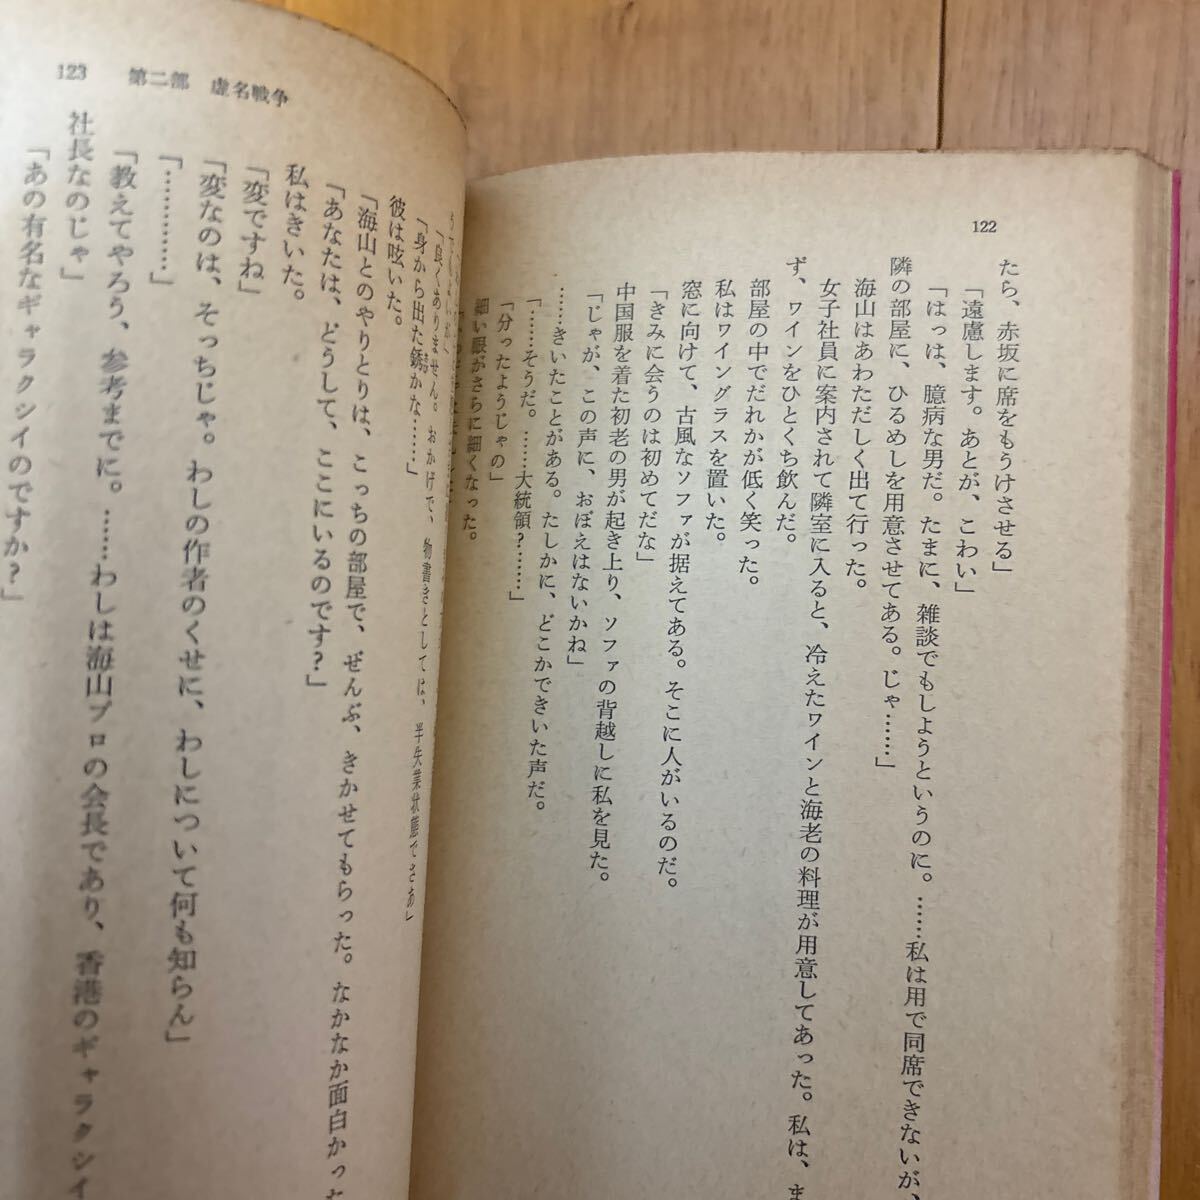 122
たら、赤坂に席をもうけさせる」
「遠慮します。あとが、こわい」
「はっは、臆病な男だ。たまに、雑談でもしようというのに。……私は用で同席できないが、
隣の部屋に、ひるめしを用意させてある。じゃ……」
海山はあわただしく出て行った。
女子社員に案内されて隣室に入ると、冷えたワインと海老の料理が用意してあった。私は、ま
ず、ワインをひとくち飲んだ。
部屋の中でだれかが低く笑った。
私はワイングラスを置いた。
窓に向けて、古風なソファが据えてある。そこに人がいるのだ。
「きみに会うのは初めてだな」
中国服を着た初老の男が起き上り、ソファの背越しに私を見た。
「じゃが、この声に、おぼえはないかね」
……きいたことがある。たしかに、どこかできいた声だ。
「……そうだ。……大統領？……」
「分ったようじゃの」
細い眼がさらに細くなった。
123 第二部 虚名戦争
「良くありません。おかげで、物書きとしては、半失業状態でさあ」
「身から出た銹かな……」
彼は呟いた。
「海山とのやりとりは、こっちの部屋で、ぜんぶ、きかせてもらった。なかなか面白かった
「あなたは、どうして、ここにいるのです？」
私はきいた。
「変ですね」
「変なのは、そっちじゃ。わしの作者のくせに、わしについて何も知らん」
「…………」
「教えてやろう、参考までに。……わしは海山プロの会長であり、香港のギャラクシイ
社長なのじゃ」
「あの有名なギャラクシイのですか？」